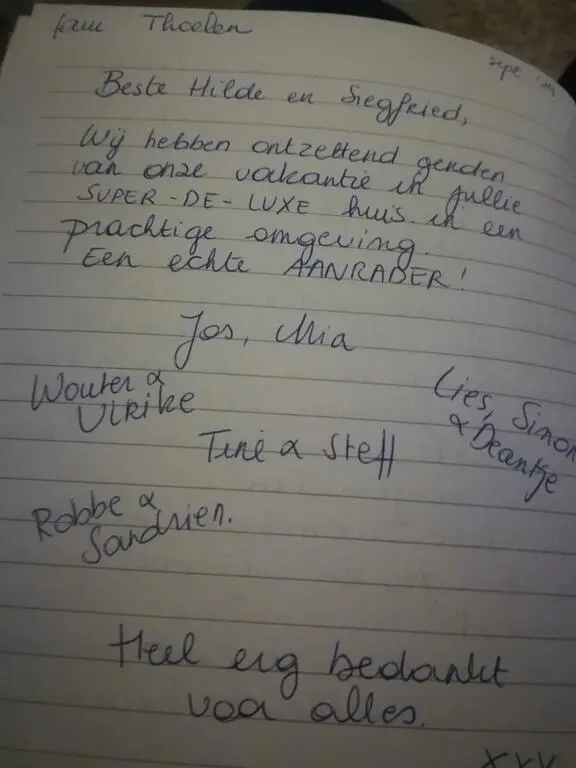 fam. Thoelen
sept
Beste Hilde en Siegfried,
Wij hebben ontzettend genoten
van onze vakantie in jullie
SUPER-DE-LUXE huis in een
prachtige omgeving.
Een echte AANRADER!
Jos, Mia
Wouter &
Ulrike
Lies, Simon
& Deantje
Tine & Steff
Robbe &
Sandrien.
Heel erg bedankt
voor alles.
XXX